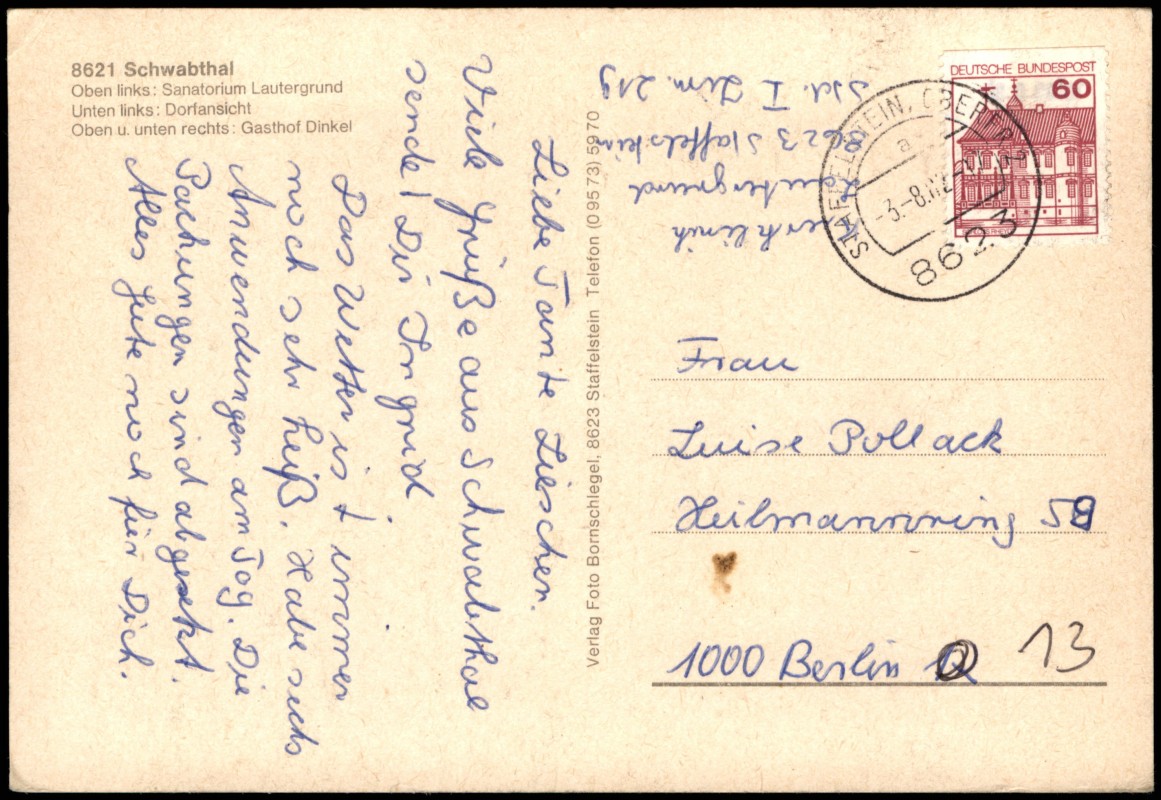 8621 Schwabthal
Oben links: Sanatorium Lautergrund
Unten links: Dorfansicht
Oben u. unten rechts: Gasthof Dinkel
Liebe Tante Lieschen.
Viele Grüße aus Schwabthal
sendet Dir Ingrid
Das Wetter ist immer
noch sehr heiß. Habe sechs
Anwendungen am Tag. Die
Packungen sind abgesetzt.
Alles Gute noch für Dich.
Verlag Foto Bornschlegel, 8623 Staffelstein Telefon (09573) 5970
Lautergrund
8623 Staffelstein
I Zim. 219
DEUTSCHE BUNDESPOST
60
STAFFELSTEIN, OBERFR
a
-3.-8.
8623
Frau
Luise Pollack
Heilmannring 59
1000 Berlin 13